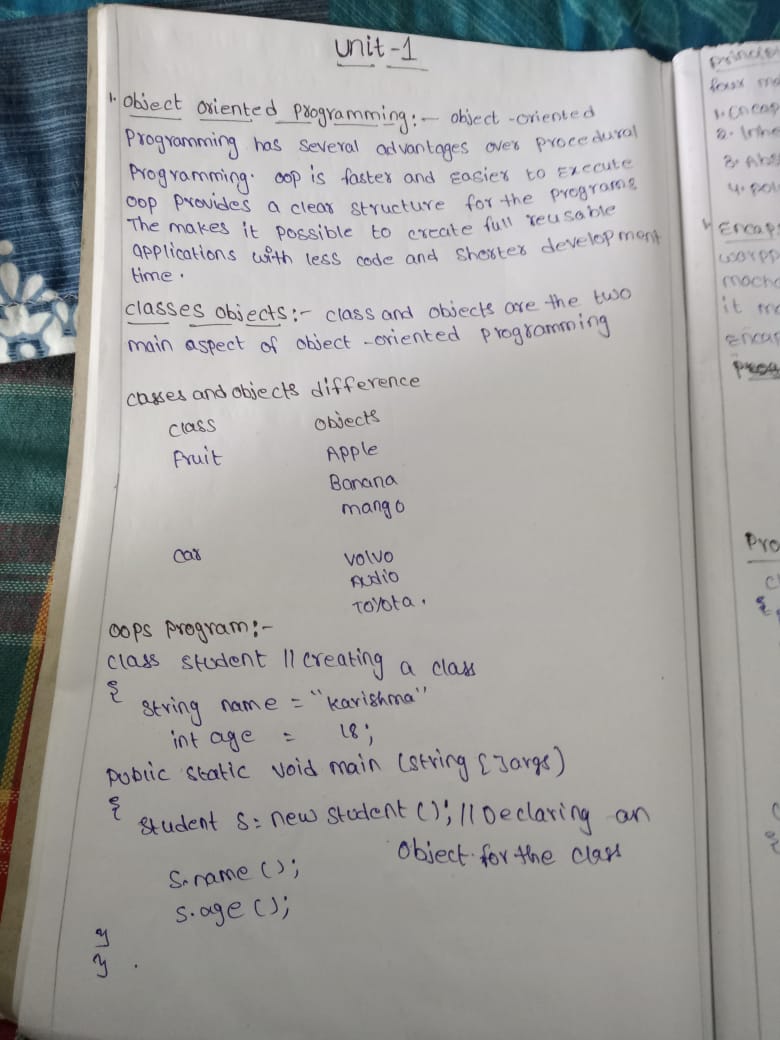 Unit-1
1. Object oriented programming:- object-oriented
Programming has several advantages over procedural
Programming. OOP is faster and Easier to Execute
OOP Provides a clear structure for the programs
The makes it possible to create full reusable
applications with less code and shorter development
time.
classes objects:- class and objects are the two
main aspect of object-oriented programming
classes and objects difference
class objects
Fruit Apple
Banana
mango
car Volvo
Audio
Toyota.
OOPS Program:-
class student // creating a class
{
string name = "karishma"
int age = 18;
public static void main (string [] args)
{
student s = new student (); // Declaring an
object for the class
s.name ();
s.age ();
}
} .
four
1.
2.
3.
4.
it
{
{